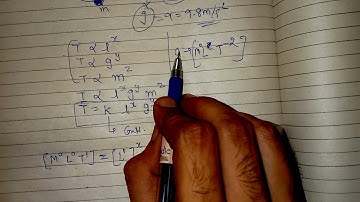 m
g = a = 9.8 m/s²
T ∝ l^x
T ∝ g^y
T ∝ m^z
T ∝ l^x g^y m^z
T = K l^x g^y
→ [M⁰ L T⁻²]
[M⁰ L⁰ T¹] = [L¹]^x